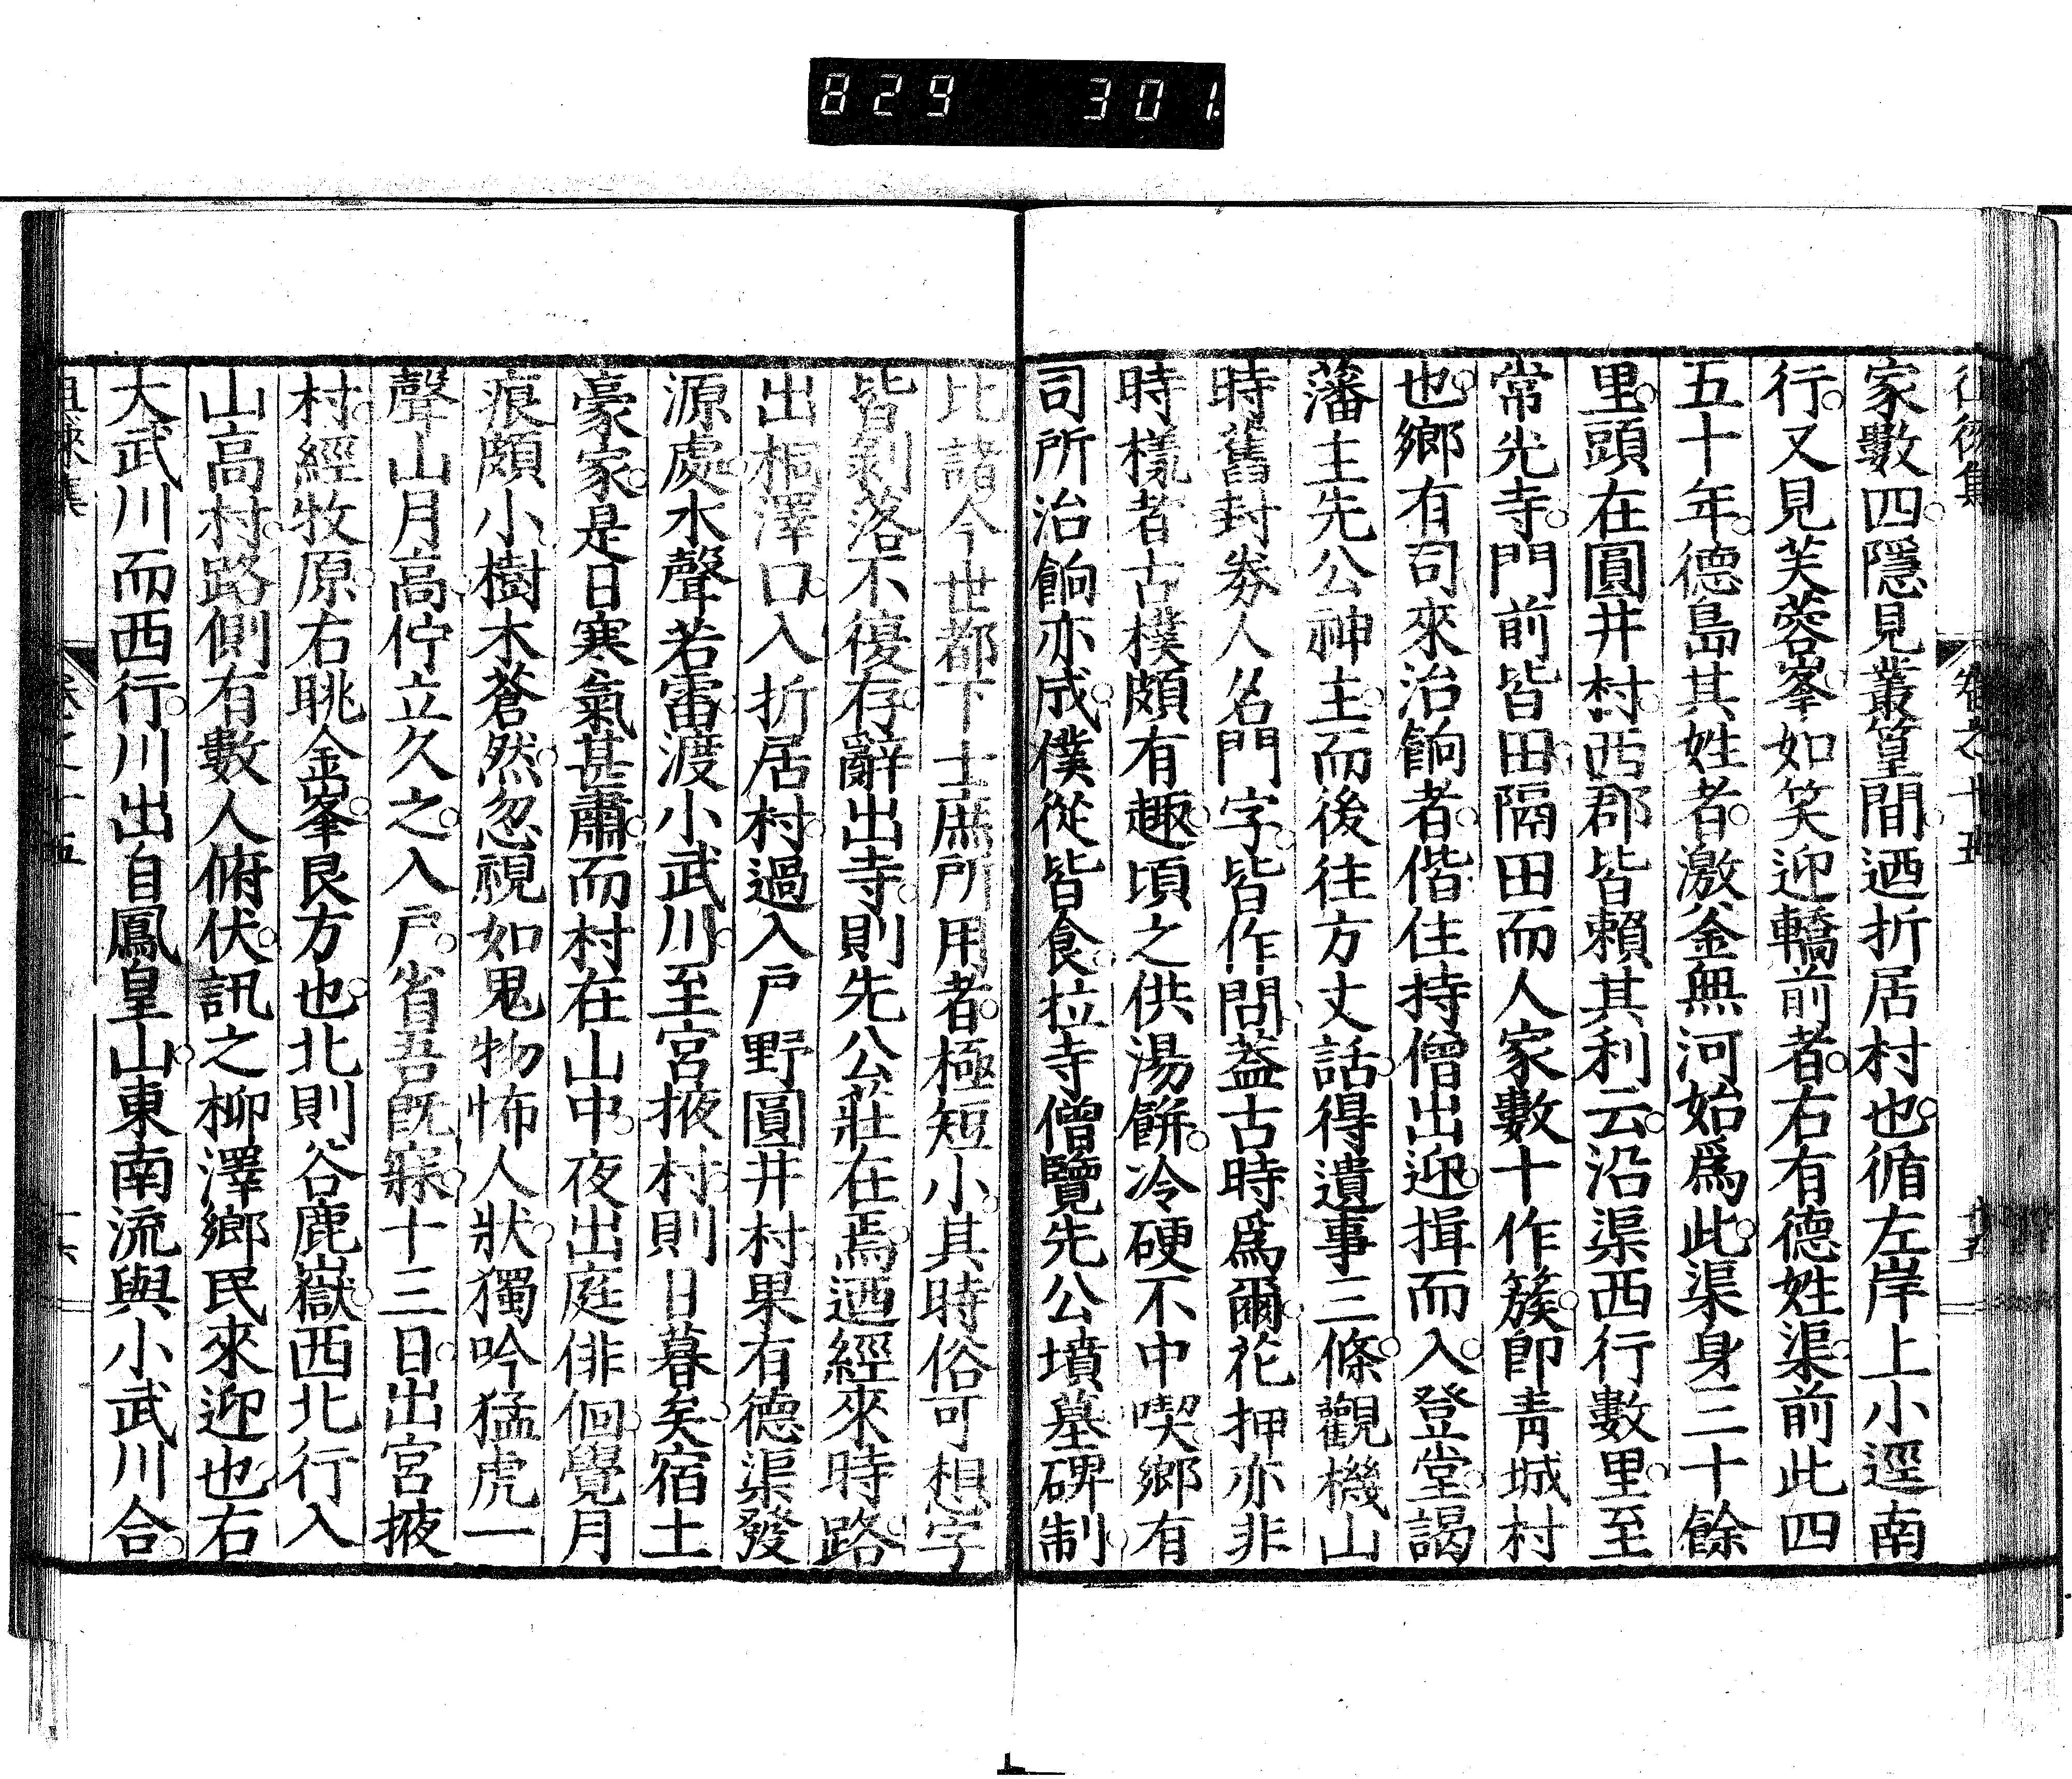 829 301
家數四隱見叢篁間迺折居村也循左岸上小逕南
行又見芙蓉峯如笑迎轎前者右有德姓渠前此四
五十年德島其姓者激釜無河始爲此渠身三十餘
里頭在圓井村西郡皆賴其利云沿渠西行數里至
常光寺門前皆田隔田而人家數十作簇即靑城村
也鄉有司來治餉者偕住持僧出迎揖而入登堂謁
藩主先公神主而後往方丈話得遺事三條觀機山
時舊封劵人名門字皆作問蓋古時爲爾花押亦非
時樣者古樸頗有趣頃之供湯餅冷硬不中喫鄉有
司所治餉亦成僕從皆食拉寺僧覽先公墳墓碑制
比諸今世都下士庶所用者極短小其時俗可想字
皆剝落不復存辭出寺則先公莊在焉迺經來時路
出桐澤口入折居村過入戶野圓井村果有德渠發
源處水聲若雷渡小武川至宮掖村則日暮矣宿土
豪家是日寒氣甚肅而村在山中夜出庭俳徊覺月
痕頗小樹木蒼然忽視如鬼物怖人狀獨吟猛虎一
聲山月高佇立久之入戶省吾旣寐十三日出宮掖
村經牧原右眺金峯艮方也北則谷鹿嶽西北行入
山高村路側有數人俯伏訊之柳澤鄉民來迎也右
大武川而西行川出自鳳皇山東南流與小武川合